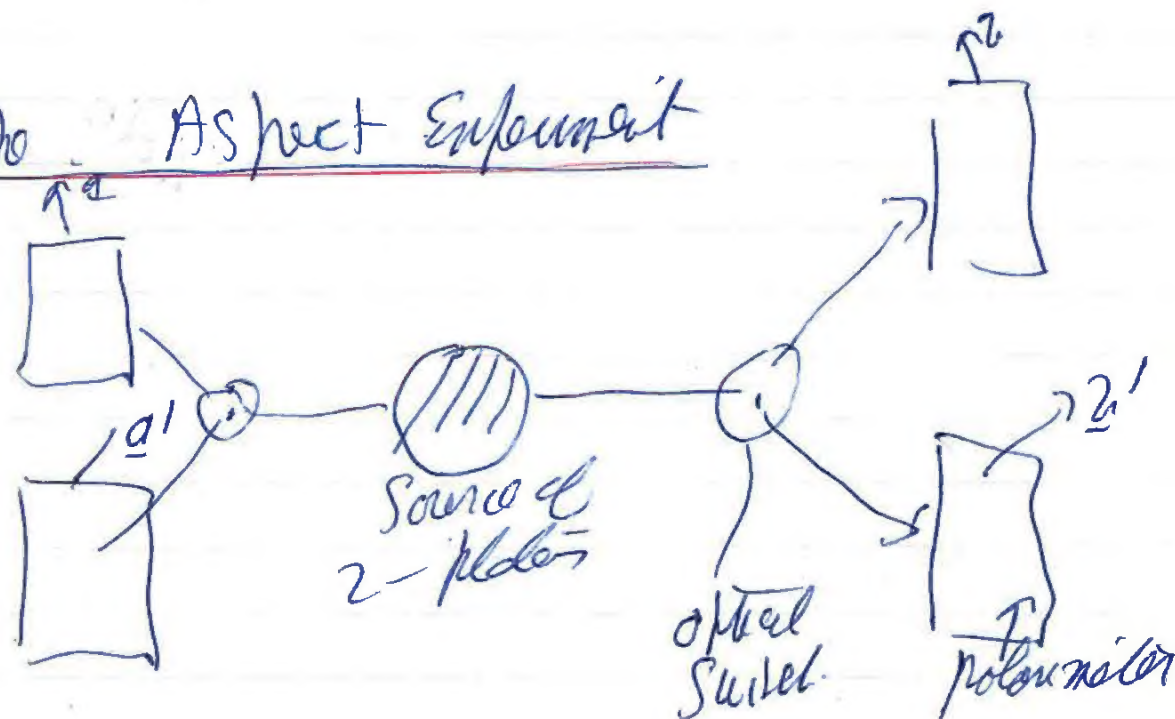 The Aspect Experiment
a
b
a'
b'
Source of
2-photons
optical
Switch.
polarimeter